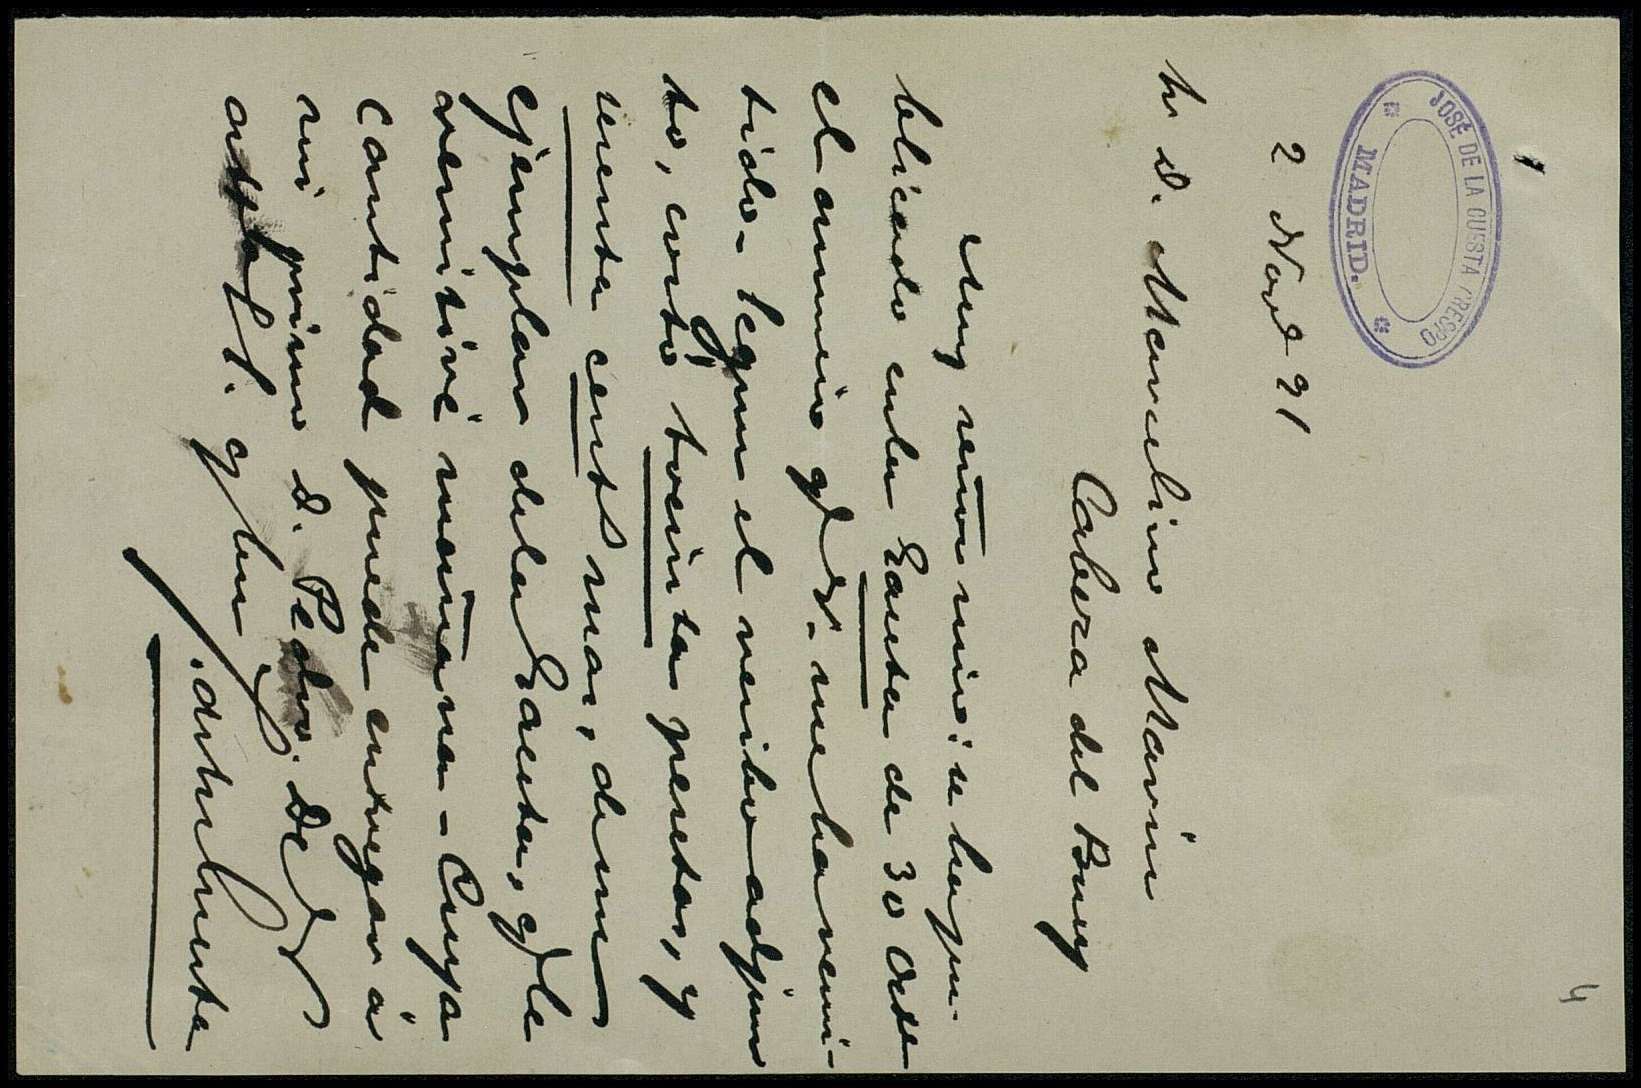 4
JOSÉ DE LA CUESTA CRESPO
MADRID.
2 Nove 91
Sr D. Marcelino Marin
Cabeza del Buey
Muy señor mio: se ha pu-
blicado en la Gaceta de 30 Octe
el anuncio q V. me ha remi-
tido - segun el recibo adjun
to, costó treinta pesetas, y
cents mas, de un
ejemplar de la Gaceta, q le
remitiré mañana - Cuya
cantidad puede entregar á
mi primo D. Pedro. De V
atto S. S. q b s m
J. de la Cuesta